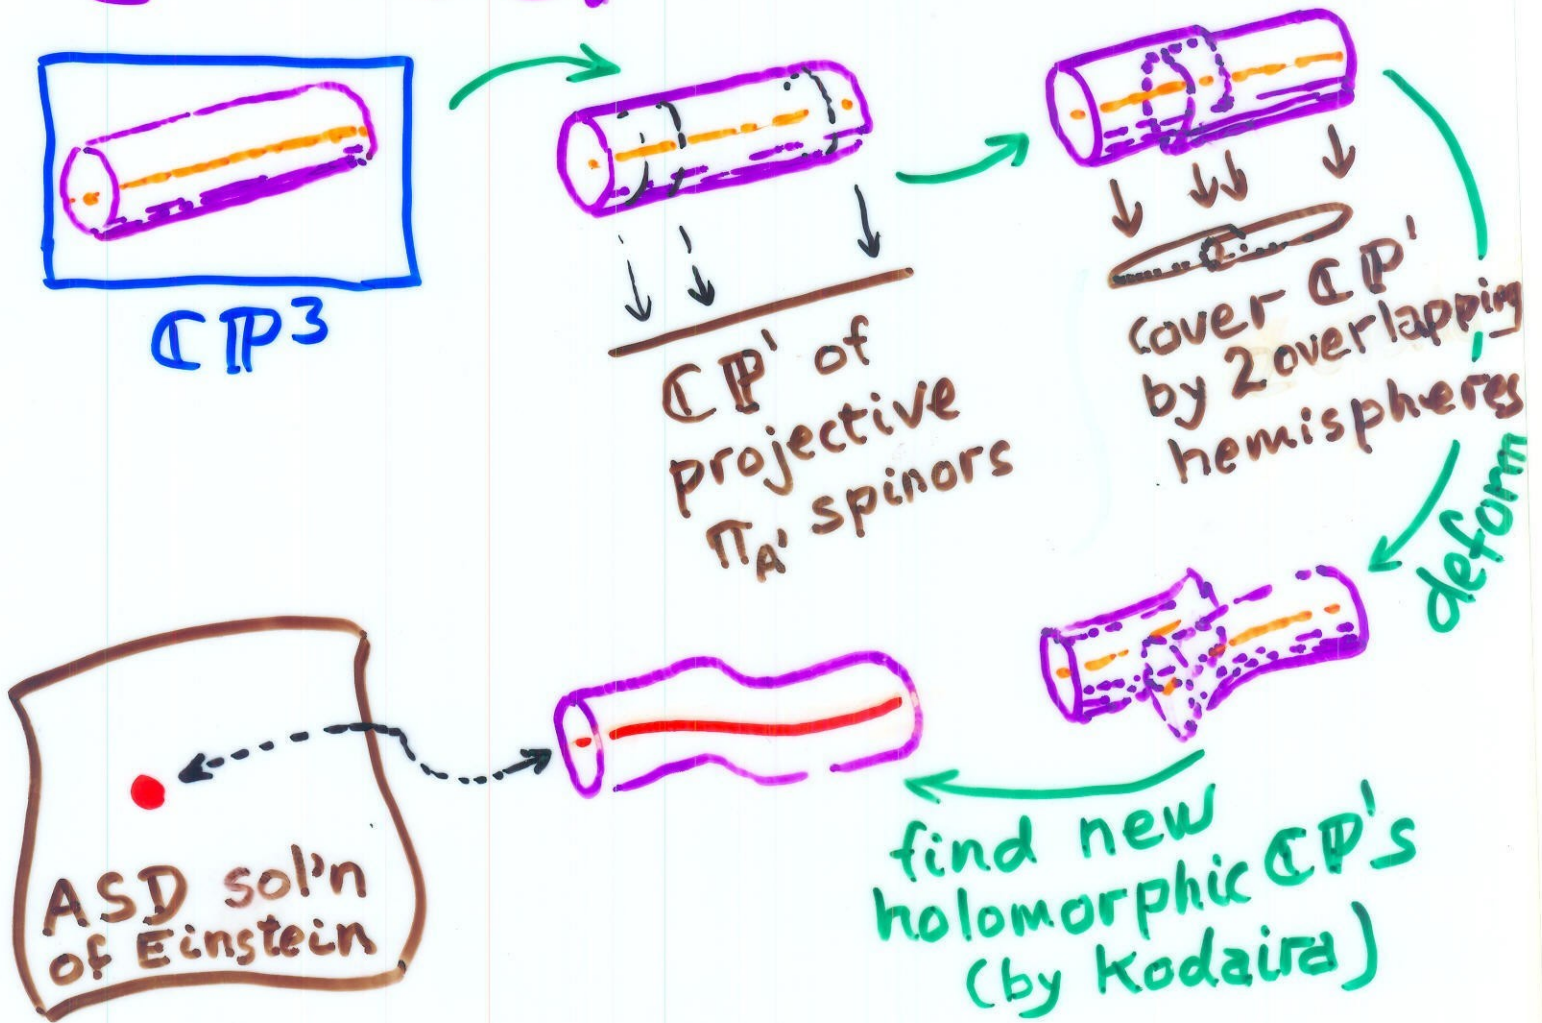 ℂℙ³
ℂℙ¹ of
projective
π_A' spinors
cover ℂℙ¹
by 2 overlapping
hemispheres
deform
find new
holomorphic ℂℙ¹s
(by Kodaira)
ASD sol'n
of Einstein